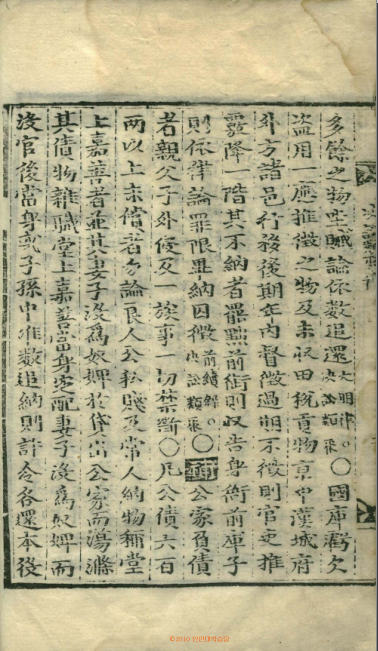 多餘之物坐贓論依數追還大明律○決訟類聚○國庫虧欠
盜用一應推徵之物及未收田稅貢物京中漢城府
外方諸邑行務後期在內督徵過期不徵則官吏推
覈降一階其不納者罷黜前銜則收告身銜前庫子
則依律論罪限畢納囚徵前續錄○決訟類聚○公家負債
者親父子外侵及一族事一切禁斷○凡公債六百
兩以上未償者勿論良人公私賤及常人納物稱堂
上嘉善者並其妻子沒爲奴婢於貸出公家而蕩滌
其債物雜職堂上嘉善當身定配妻子沒爲奴婢而
沒官後當身或子孫中准數追納則許令各還本役
©2010 인민대학습당